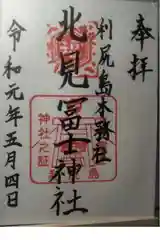 奉拝
利尻島本務社
北見富士神社
神社之証
令和元年五月四日